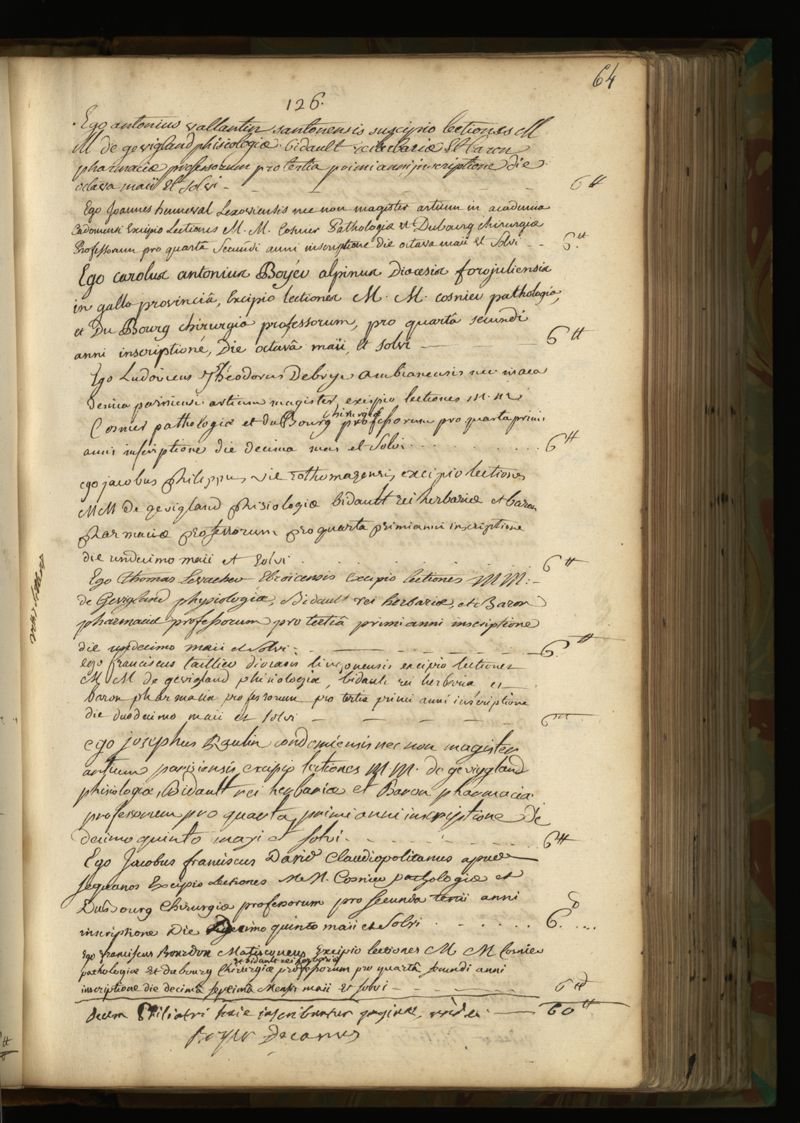 64
126.
Ego antonius vallantin santonensis suscipio lectiones M
M de gevigland phisiologiæ bidault rei herbariæ Et baron
pharmaciæ professorum pro tertia primi anni inscriptione die
octava maii Et solvi - 6 ₶
Ego Joannes hunneval Lexoviensis nec non magister artium in academia
Cadomensi Excipio Lectiones M. M. Cosnier Pathologiæ et Dubourg chirurgiæ
Professorum pro quartâ Secundi anni inscriptione die octava maii et Solvi - 6 ₶
Ego carolus antonius Boyer alpinus Diocesis forojuliensis
in gallo provinciâ, Excipio lectiones M. M. cosnier pathologiæ,
et Du Bourg chirurgiæ professorum, pro quartâ secundi
anni inscriptioné, Die octavâ maii, et solvi - 6 ₶
Ego Ludovicus Théodorus Debrye Ambianensis nec in aca
demia parisiensi artium magister, excipio lectiones m. m
Cosnier pathologiæ et duBourg chirurgiæ professorum pro quarta primi
anni inscriptione die decima maii et Solvi 6 ₶
ego jacobus philippus vie rothomagensis, excipio lectiones
MM de gevigland phisiologiæ bidault rei herbariæ et baron
pharmaciæ professorum pro quarta primi anni inscriptione
die undecimo maii et Solvi 6 ₶
Ego Thomas Levacher Ebroicensis Excipio lectiones MM.
de Gevigland physiologiæ, Bidault rei herbariæ, et Baron
pharmaciæ professorum pro tertiâ primi anni inscriptione
die undecimo maii et solvi - 6 ₶
ego franciscus taillieu diocesis excipio lectiones
M M de gevigland phisiologiæ, bidault rei herbariæ et
baron pharmaciæ professorum pro tertia primi anni inscriptione
die duodecimo maii et solvi - 6 ₶
ego josephus Raulin condomiensis nec non magister
artium parisiensis, excipio lectiones MM. de gevigland
phisiologiæ, Bidault rei herbariæ et Baron pharmaciæ
professorum pro quarta primi anni inscriptione die
decimo quinto maii et solvi - 6 ₶
Ego Jacobus franciscus David Claudiopolitanus apud
sequanos Excipio Lectiones M.M. Cosnier pathologiæ et
Dubourg Chirurgiæ professorum pro secunda tertii anni
inscriptione Die decimo quinto maii et solvi 6 ₶
Ego franciscus Bourdon Matisconeus Excipio lectiones M M Cosnier
et bidault rei herbariæ
pathologiæ Et dubourg Chirurgiæ professorum pro quartâ secundi anni
inscriptione die decimâ septimâ Mensis maii et solvi - 6 ₶
decem Philiatri hacce inscribuntur paginâ, - 60 ₶
Boyer Decanus